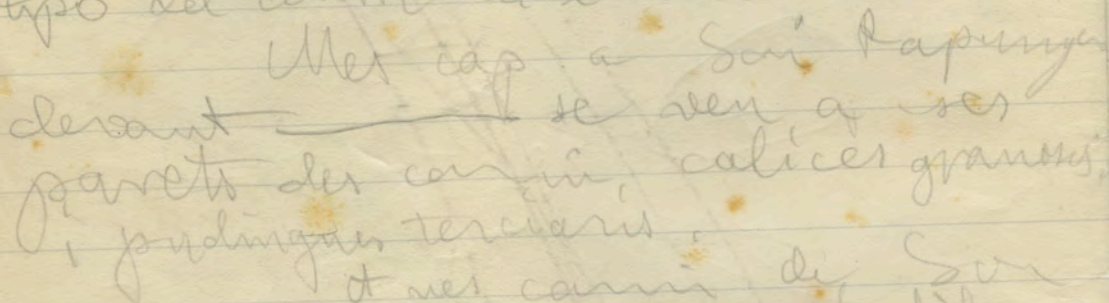 tipo del
Mes cap a Son Rapunya
devant ——— se veu a ses
parets des camin, calices granoses,
i pudingues terciaris.
A mes cami de Son